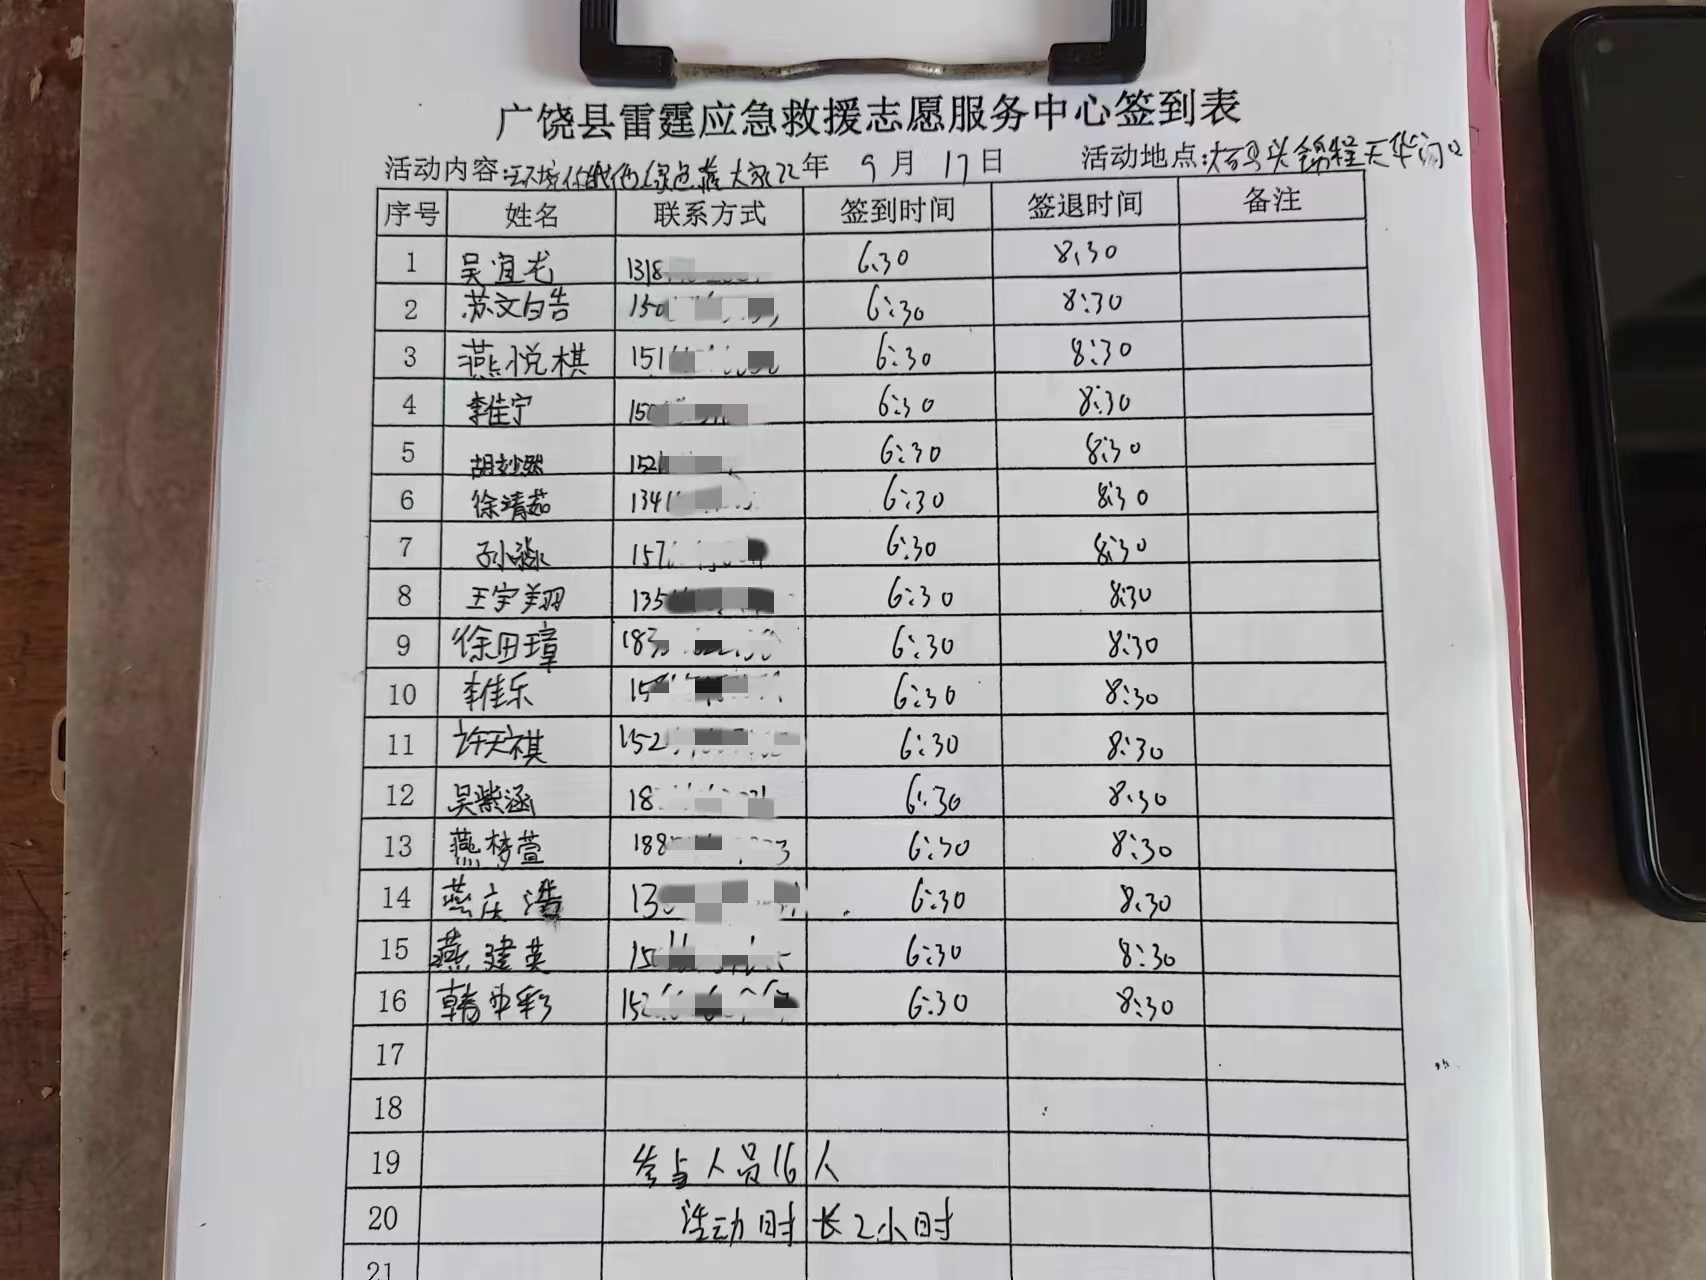 广饶县雷霆应急救援志愿服务中心签到表
活动内容: 22年 9月 17日 活动地点: 锦程天华门口
序号 姓名 联系方式 签到时间 签退时间 备注
1 吴宜龙 1318 6:30 8:30
2 苏文白告 150 6:30 8:30
3 燕悦棋 151 6:30 8:30
4 李佳宁 150 6:30 8:30
5 胡 152 6:30 8:30
6 徐靖茹 134 6:30 8:30
7 孙 157 6:30 8:30
8 王宇翔 135 6:30 8:30
9 徐田璋 183 6:30 8:30
10 李佳乐 15 6:30 8:30
11 许天祺 152 6:30 8:30
12 吴紫涵 18 6:30 8:30
13 燕梦萱 188 6:30 8:30
14 燕庆浩 13 6:30 8:30
15 燕建英 150 6:30 8:30
16 韩 彩 152 6:30 8:30
17
18
19 参与人员16人
20 活动时长2小时
21